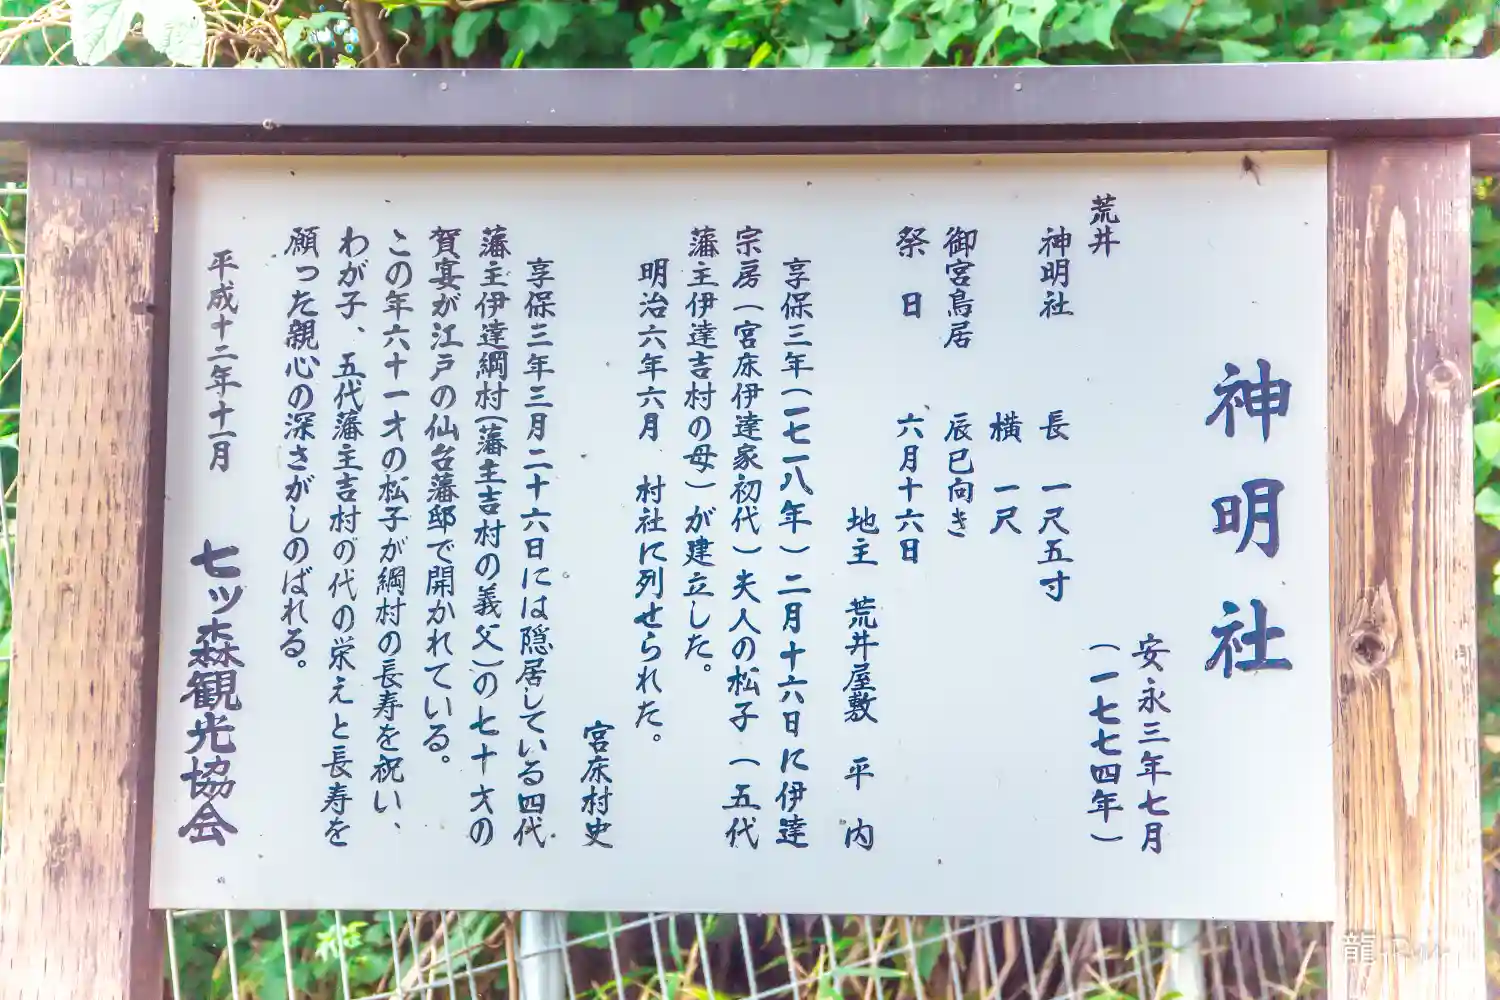 神明社
安永三年七月
(一七七四年)
荒井
神明社　長　一尺五寸
横　一尺
御宮鳥居　辰巳向き
祭　日　六月十六日
地主　荒井屋敷　平　内
享保三年(一七一八年)二月十六日に伊達
宗房(宮床伊達家初代)夫人の松子(五代
藩主伊達吉村の母)が建立した。
明治六年六月　村社に列せられた。
宮床村史
享保三年三月二十六日には隠居している四代
藩主伊達綱村(藩主吉村の義父)の七十才の
賀宴が江戸の仙台藩邸で開かれている。
この年六十一才の松子が綱村の長寿を祝い、
わが子、五代藩主吉村の代の栄えと長寿を
願った親心の深さがしのばれる。
平成十二年十一月　七ッ森観光協会
龍